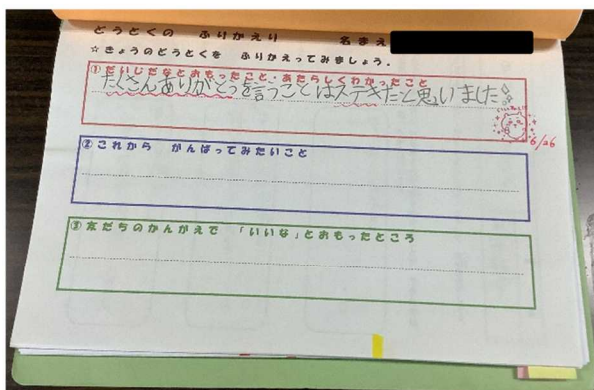 どうとくの ふりかえり 名まえ
☆きょうのどうとくを ふりかえってみましょう.
①だいじだなとおもったこと、あたらしくわかったこと
たくさんありがとうを言うことはステキだと思いました
6/26
②これから がんばってみたいこと
③友だちのかんがえで 「いいな」とおもったところ